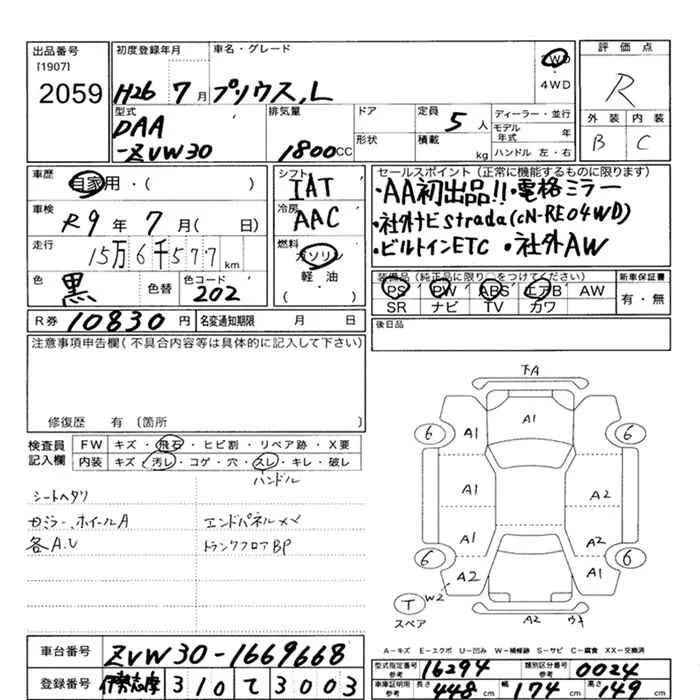 出品番号
[1907]
2059
初度登録年月
H26 7月
車名・グレード
プリウス, L
2WD
4WD
評価点
R
外装 内装
B C
型式
DAA
-ZVW30
排気量
1800CC
ドア
形状
定員 5人
積載 kg
ディーラー・並行
モデル年式 年
ハンドル 左・右
車歴
自家用・( )
車検
R9年 7月( 日)
走行
15万6千577km
色
黒
色替
色コード
202
シフト
IAT
冷房
AAC
燃料
ガソリン
軽・油
( )
セールスポイント(正常に機能するものに限ります)
・AA初出品!! ・電格ミラー
・社外ナビstrada(CN-RE04WD)
・ビルトインETC ・社外AW
装備品(純正品に限り○をつけてください)
PS PW ABS エアB AW
SR ナビ TV カワ
新車保証書
有・無
R券 10830円
名変通知期限 月 日
後日品
注意事項申告欄(不具合内容等は具体的に記入して下さい)
修復歴 有〔箇所
検査員記入欄
FW キズ・飛石・ヒビ割・リペア跡・X要
内装 キズ・汚レ・コゲ・穴・スレ・キレ・破レ
ハンドル
シートヘタリ
ミラー、ホイールA
各A.U
エンドパネルメマ
トランクフロアBP
下A
A1
6 A1 A1 6
A1 A2
A1 A2
6 A2 A1 6
W2
T
スペア
A2
A-キズ E-エクボ U-凹み W-補修跡 S-サビ C-腐食 XX-交換済
車台番号
ZVW30-1669668
登録番号
伊勢志摩 310 て 3003
型式指定番号 参考
16294
類別区分番号 参考
0024
車庫証明用 参考
長さ 448cm 幅 174cm 高さ 149cm